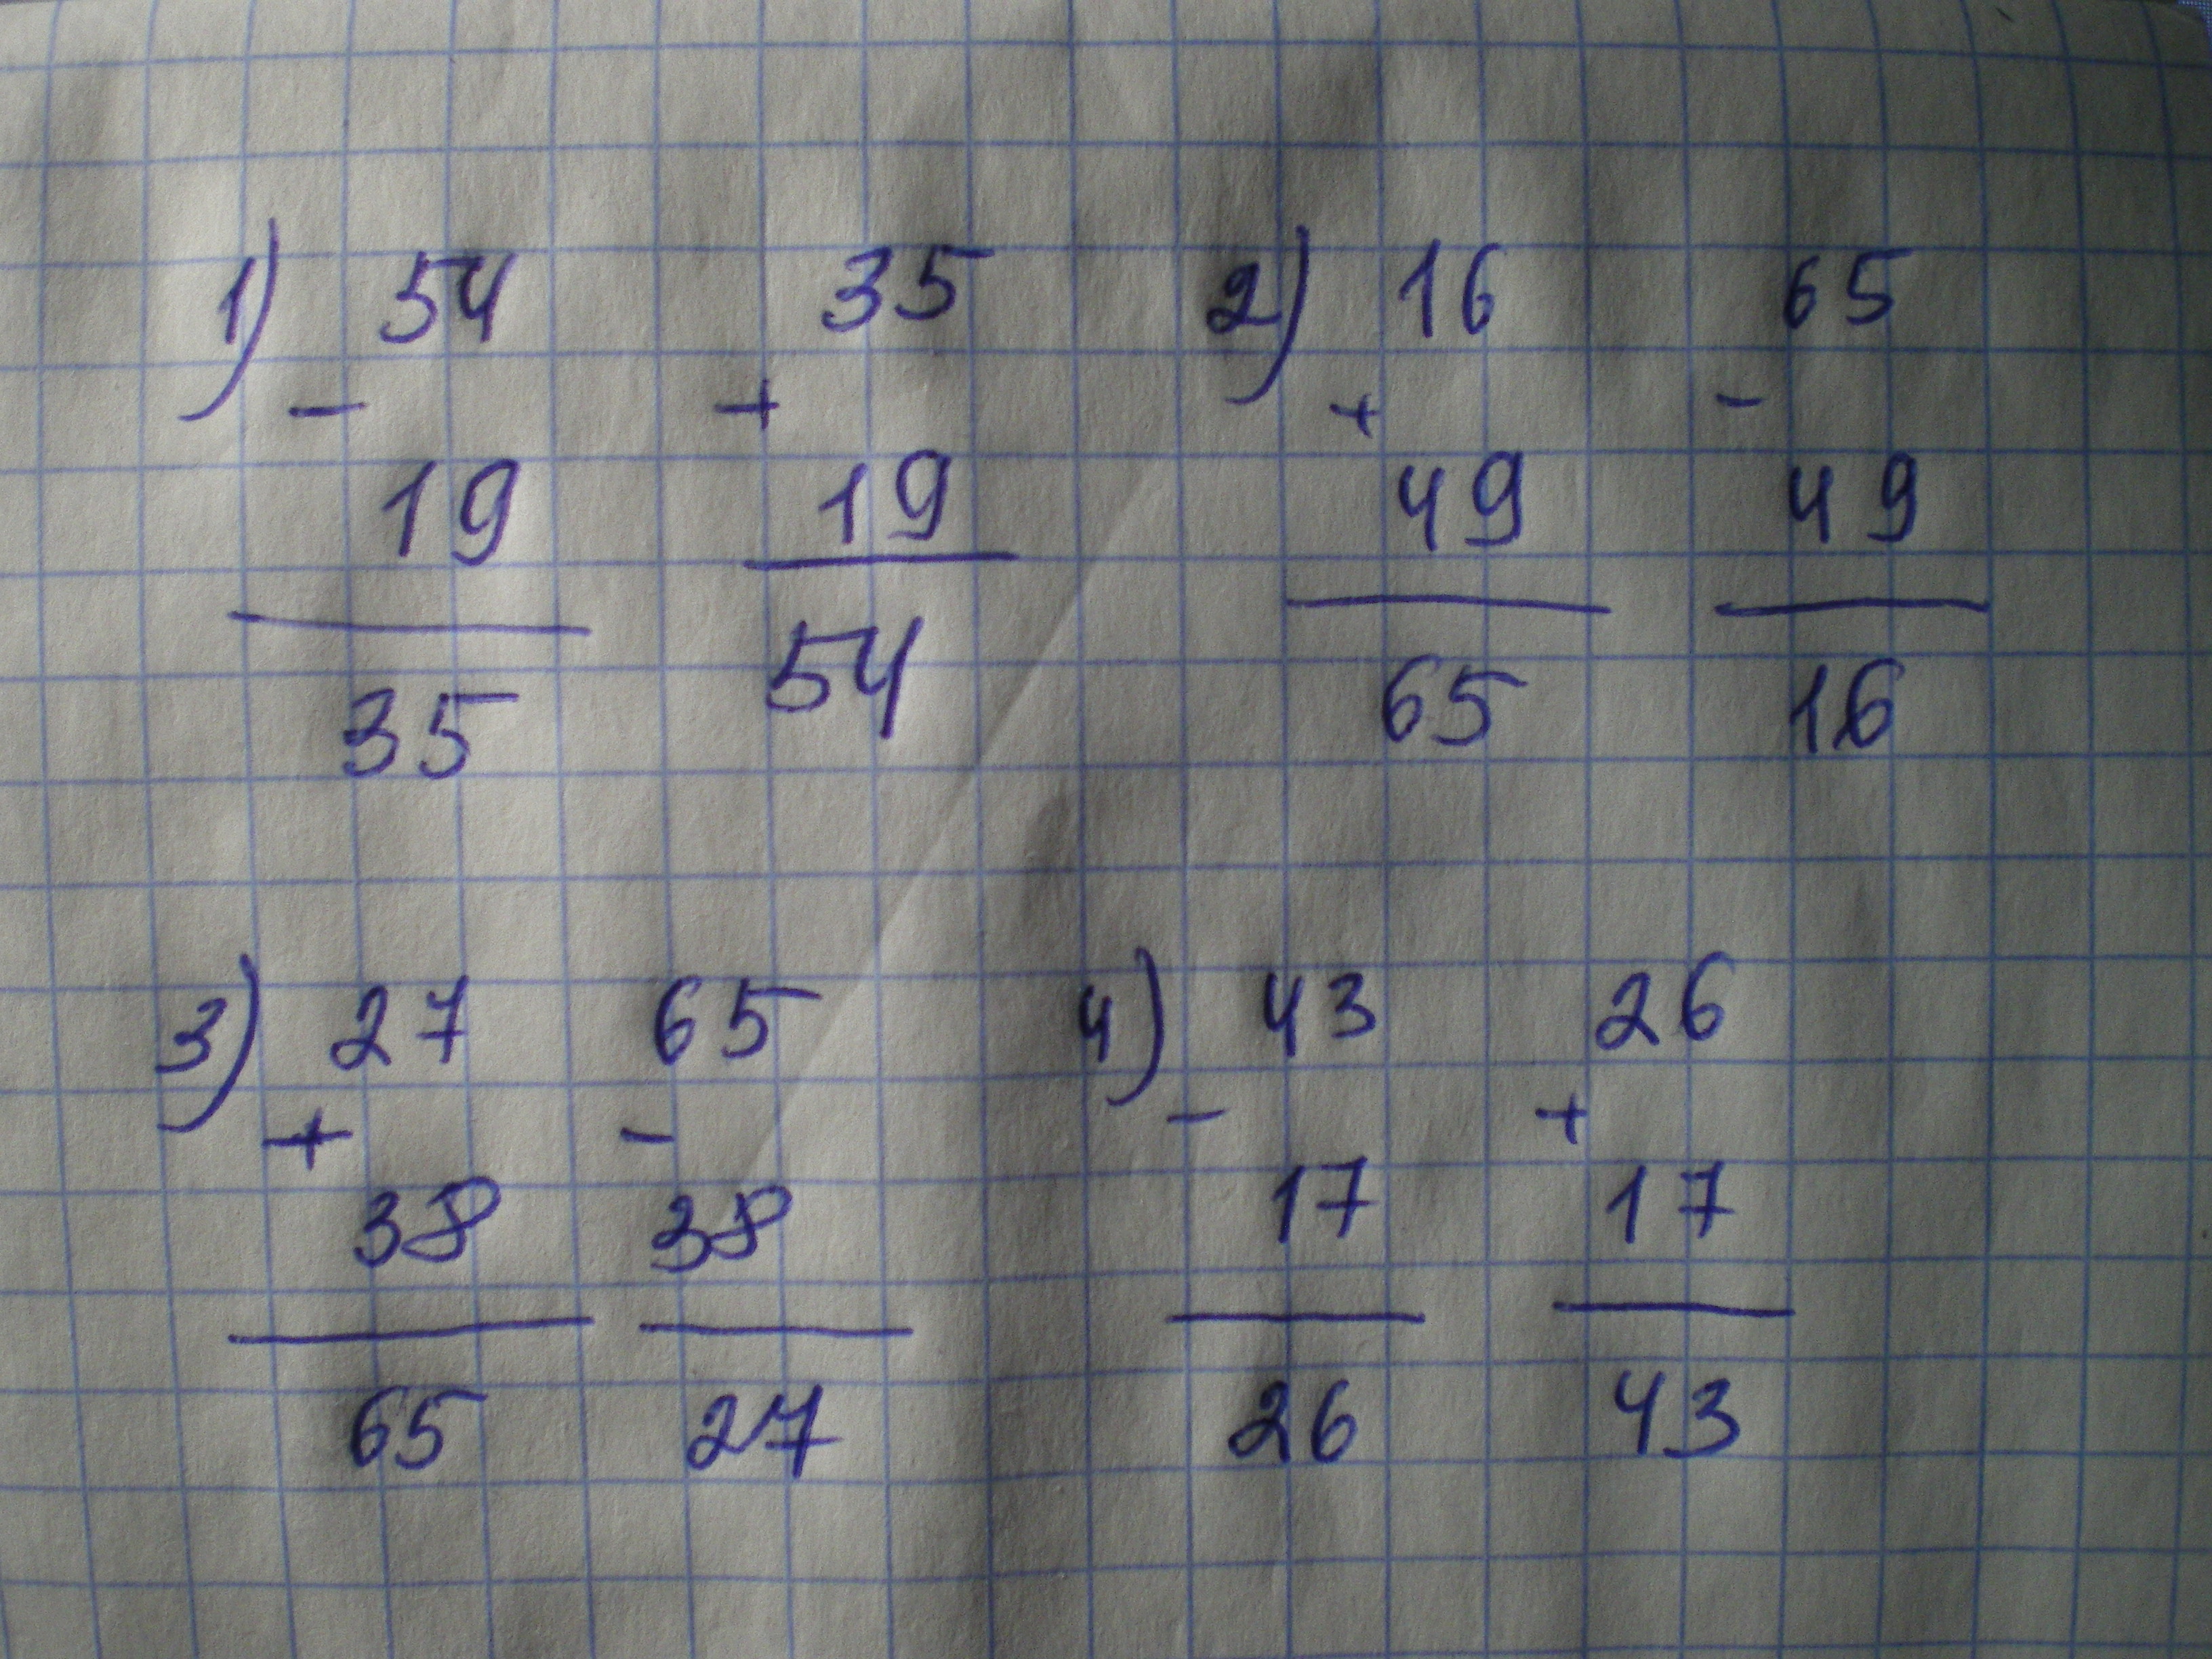 1) 54 35 2) 16 65
− + + −
19 19 49 49
35 54 65 16
3) 27 65 4) 43 26
+ − − +
38 38 17 17
65 27 26 43